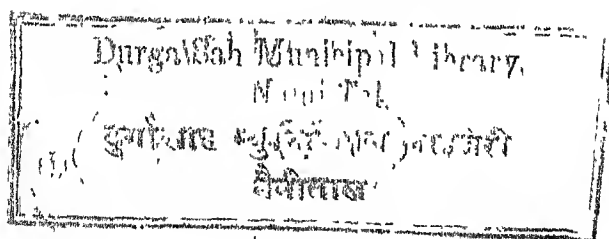 Durga Sah Municipal Library,
Naini Tal.
दुर्गासाह म्युनिसिपल
नैनीताल